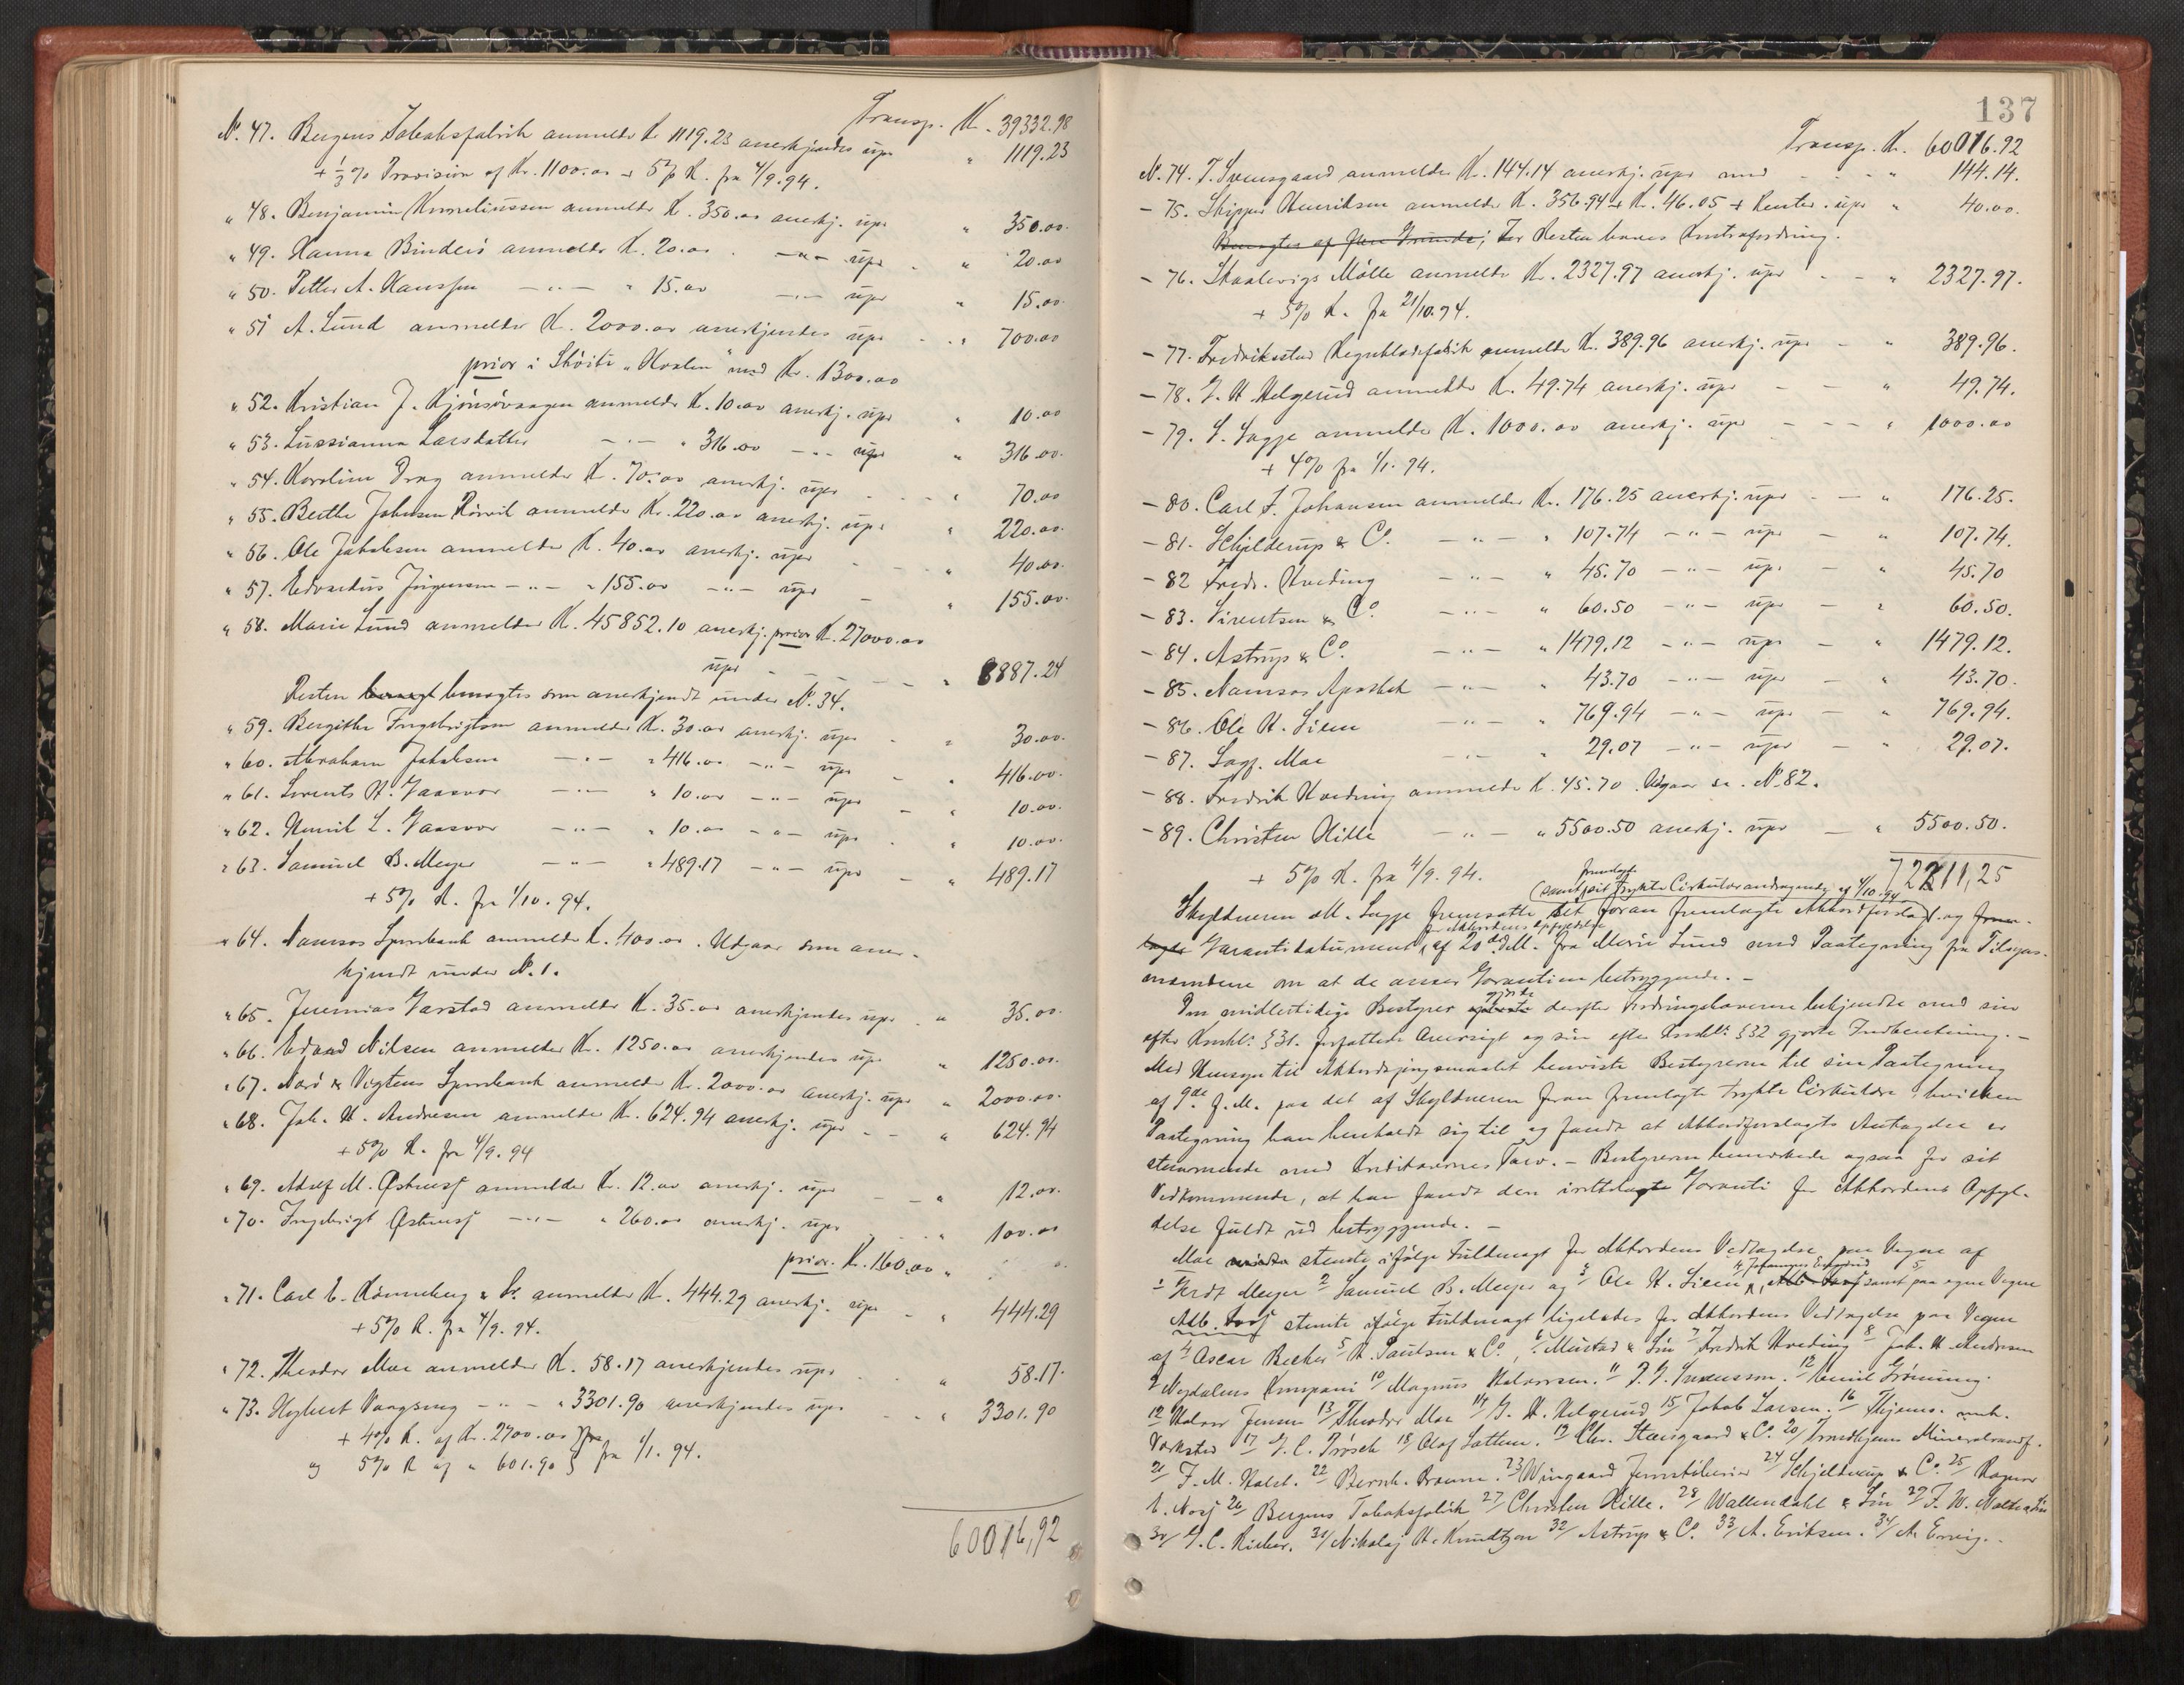 Transp. Kr. 39332.98
No. 47. Bergens Tobaksfabrik anmelder Kr 1119.23 anerkjendes upr " 1119.23
+ 1/3 % Provision af Kr. 1100.00 + 5 % R. fra 4/9.94.
" 48. Benjamin Korneliussen anmelder Kr. 350.00 anerkj. upr " 350.00.
" 49. Hanna Bindlis anmelder Kr. 20.00 . -"- upr . " 20.00
" 50. Petter A. Hanssen -"- " 15.00 -"- upr " 15.00.
" 51 A. Lund anmelder Kr. 2000.00 anerkjendes upr . " 700.00
prior i Skøite "Kvalen" med Kr. 1300.00
" 52. Kristian J. Kjønsøvaagen anmelder Kr. 10.00 anerkj. upr " 10.00
" 53. Lussianna Larsdatter -"- " 316.00 -"- upr " 316.00.
" 54. Karoline Drag anmelder Kr. 70.00 anerkj. upr - - " 70.00
" 55. Berthe Johnsen Rørvik anmelder Kr. 220.00 anerkj. upr " 220.00.
" 56. Ole Jakobsen anmelder Kr. 40.00 anerkj. upr - - " 40.00.
" 57. Edvardius Jørgensen -"- " 155.00 -"- upr - " 155.00.
" 58. Marie Lund anmelder Kr. 45852.10 anerkj. prior Kr. 27000.00
upr - - - - " 8887.24
Resten benægt benægtes som anerkjendt under No. 34.
" 59. Bergithe Ingebrigtsen anmelder Kr. 30.00 anerkj. upr - " 30.00.
" 60. Abraham Jakobsen -"- " 416.00 -"- upr - " 416.00.
" 61. Lorents H. Gaasvær -"- " 10.00 -"- upr - " 10.00.
" 62. Henrik L. Gaasvær -"- " 10.00 -"- upr . " 10.00.
" 63. Samuel B. Meyer -"- " 489.17 -"- upr - " 489.17
+ 5 % R. fra 1/10.94.
" 64. Namsos Sparebank anmelder Kr. 400.00. Udgaar som aner-
kjendt under No. 1.
" 65. Jeremias Garstad anmelder Kr. 35.00 anerkjendes upr . " 35.00.
" 66. Edvard Nilsen anmelder Kr. 1250.00 anerkjendes upr " 1250.00.
" 67. Nærø & Vigtens Sparebank anmelder Kr. 2000.00 anerkj. upr " 2000.00.
" 68. Joh. H. Andresen anmelder Kr. 624.94 anerkj. upr - - " 624.94
+ 5 % R. fra 4/9.94
" 69. Adolf M. Østnesf anmelder Kr. 12.00 anerkj. upr - - " 12.00.
" 70. Ingebrigt Østnesf -"- " 260.00 anerkj. upr . . " 100.00
prior. Kr. 160.00 "
" 71. Carl E. Rønneberg & Sr. anmelder Kr. 444.29 anerkj. upr - " 444.29
+ 5 % R. fra 4/9.94.
" 72. Theodor Moe anmelder Kr. 58.17 anerkjendes upr . " 58.17.
" 73. Hybert Vaagseng -"- " 3301.90 anerkjendes upr . " 3301.90
+ 4 % R. af Kr. 2700.00 } fra
og 5 % R af " 601.90 } fra 1/1.94.
60016,92
137
Transp. Kr. 60016.92
No. 74. T. Svensgaard anmelder Kr. 144.14 anerkj. upr med - - " 144.14.
- 75. Skipper Henriksen anmelder Kr. 356.94 + Kr. 46.05 + Renter. upr " 40.00.
Benægtes af flere Grunde; For Resten haves Kontrafordring.
- 76. Skaalevigs Mølle anmelder Kr. 2327.97 anerkj. upr - - " 2327.97.
+ 5 % R. fra 21/10.94.
- 77. Fredriksstad Regnklædefabrik anmelder Kr. 389.96 anerkj. upr - " 389.96.
- 78. G. H. Helgerud anmelder Kr. 49.74 anerkj. upr - - " 49.74.
- 79. S. Sagge anmelder Kr. 1000.00 anerkj. upr - - - " 1000.00
+ 4 % fra 1/1.94.
- 80. Carl F. Johansen anmelder Kr. 176.25 anerkj. upr - - " 176.25.
- 81. Schjelderup & Co. -"- " 107.74 -"- upr - " 107.74.
- 82 Fredr. Hveding -"- " 45.70 -"- upr - " 45.70
- 83. Sivertsen & Co -"- " 60.50 -"- upr - " 60.50.
- 84. Astrup & Co. -"- " 1479.12 -"- upr - " 1479.12.
- 85. Namsos Apothek -"- " 43.70 -"- upr - " 43.70.
- 86. Ole H. Liem -"- " 769.94 -"- upr - " 769.94.
- 87. Sagf. Moe -"- " 29.07 -"- upr - " 29.07.
- 88. Fredrik Hveding anmelder Kr. 45.70. Udgaar se. No. 82.
- 89. Christen Hille -"- " 5500.50 anerkj. upr - " 5500.50.
+ 5 % R. fra 4/9.94. 72211,25
fremlagte
(samt sit trykte Cirkulærandragende af 4/10.94)
Skyldneren M. Sagge fremsatte det foran fremlagte Akkordforslag og frem-
for Akkordens Opfyldelse
lagte Garantidokument af 20de d.M. fra Marie Lund med Paategning fra Tilsyns-
mændene om at de anser Garantien betryggende. -
gjorde
Den midlertidige Bestyrer derefter Fordringshaverne bekjendte med sin
efter Konkl: § 31. forfattede Oversigt og sin efter Konkl: § 32 gjorte Indberetning. -
Med Hensyn til Akkordspørgsmaalet henviste Bestyreren til sin Paategning
af 9de f. M. paa det af Skyldneren foran fremlagte trykte Cirkulære, hvilken
Paategning han henholdt sig til og fandt at Akkordforslagets Antagelse er
stemmende med Kreditorernes Tarv. - Bestyreren bemærkede ogsaa for sit
Vedkommende, at han fandt den irettelagte Garanti for Akkordens Opfyl-
delse fuldt ud betryggende. -
Moe stemte ifølge Fuldmagt for Akkordens Vedtagelse paa Vegne af
1 Gerdt Meyer 2 Samuel B. Meyer og 3 Ole H. Liem, samt paa egne Vegne
Alb. stemte ifølge Fuldmagt ligeledes for Akkordens Vedtagelse paa Vegne
af 4 Oscar Becher 5 R. Paulsen & Co, 6 Mustad & Søn 7 Fredrik Hveding 8 Joh. H. Andresen
9 Nydalens Kompani 10 Magnus Halvorsen. 11 P. G. Svenessen. 12 Emil Grønning.
12 Halvor Jensen 13 Theodor Moe 14 G. H. Helgerud 15 Jakob Larsen. 16 Thjems. mek.
Værksted 17 G. C. Prösch 18 Olof Sattem. 19 Chr. Stensgaard & Co. 20 Trondhjems Mineralvandf.
21 F. M. Holst. 22 Bernh. Braun. 23 Wingaard Jernstøberier 24 Schjelderup & Co. 25 Ragnar
E. Nosf 26 Bergens Tobaksfabrik 27 Christen Hille. 28 Wallendahl & Søn 29 F. W. Holte & Søn
30 G. C. Rieber. 31 Nikolaj H. Knudtzon 32 Astrup & Co. 33 A. Eriksen. 34 A. Enerig.